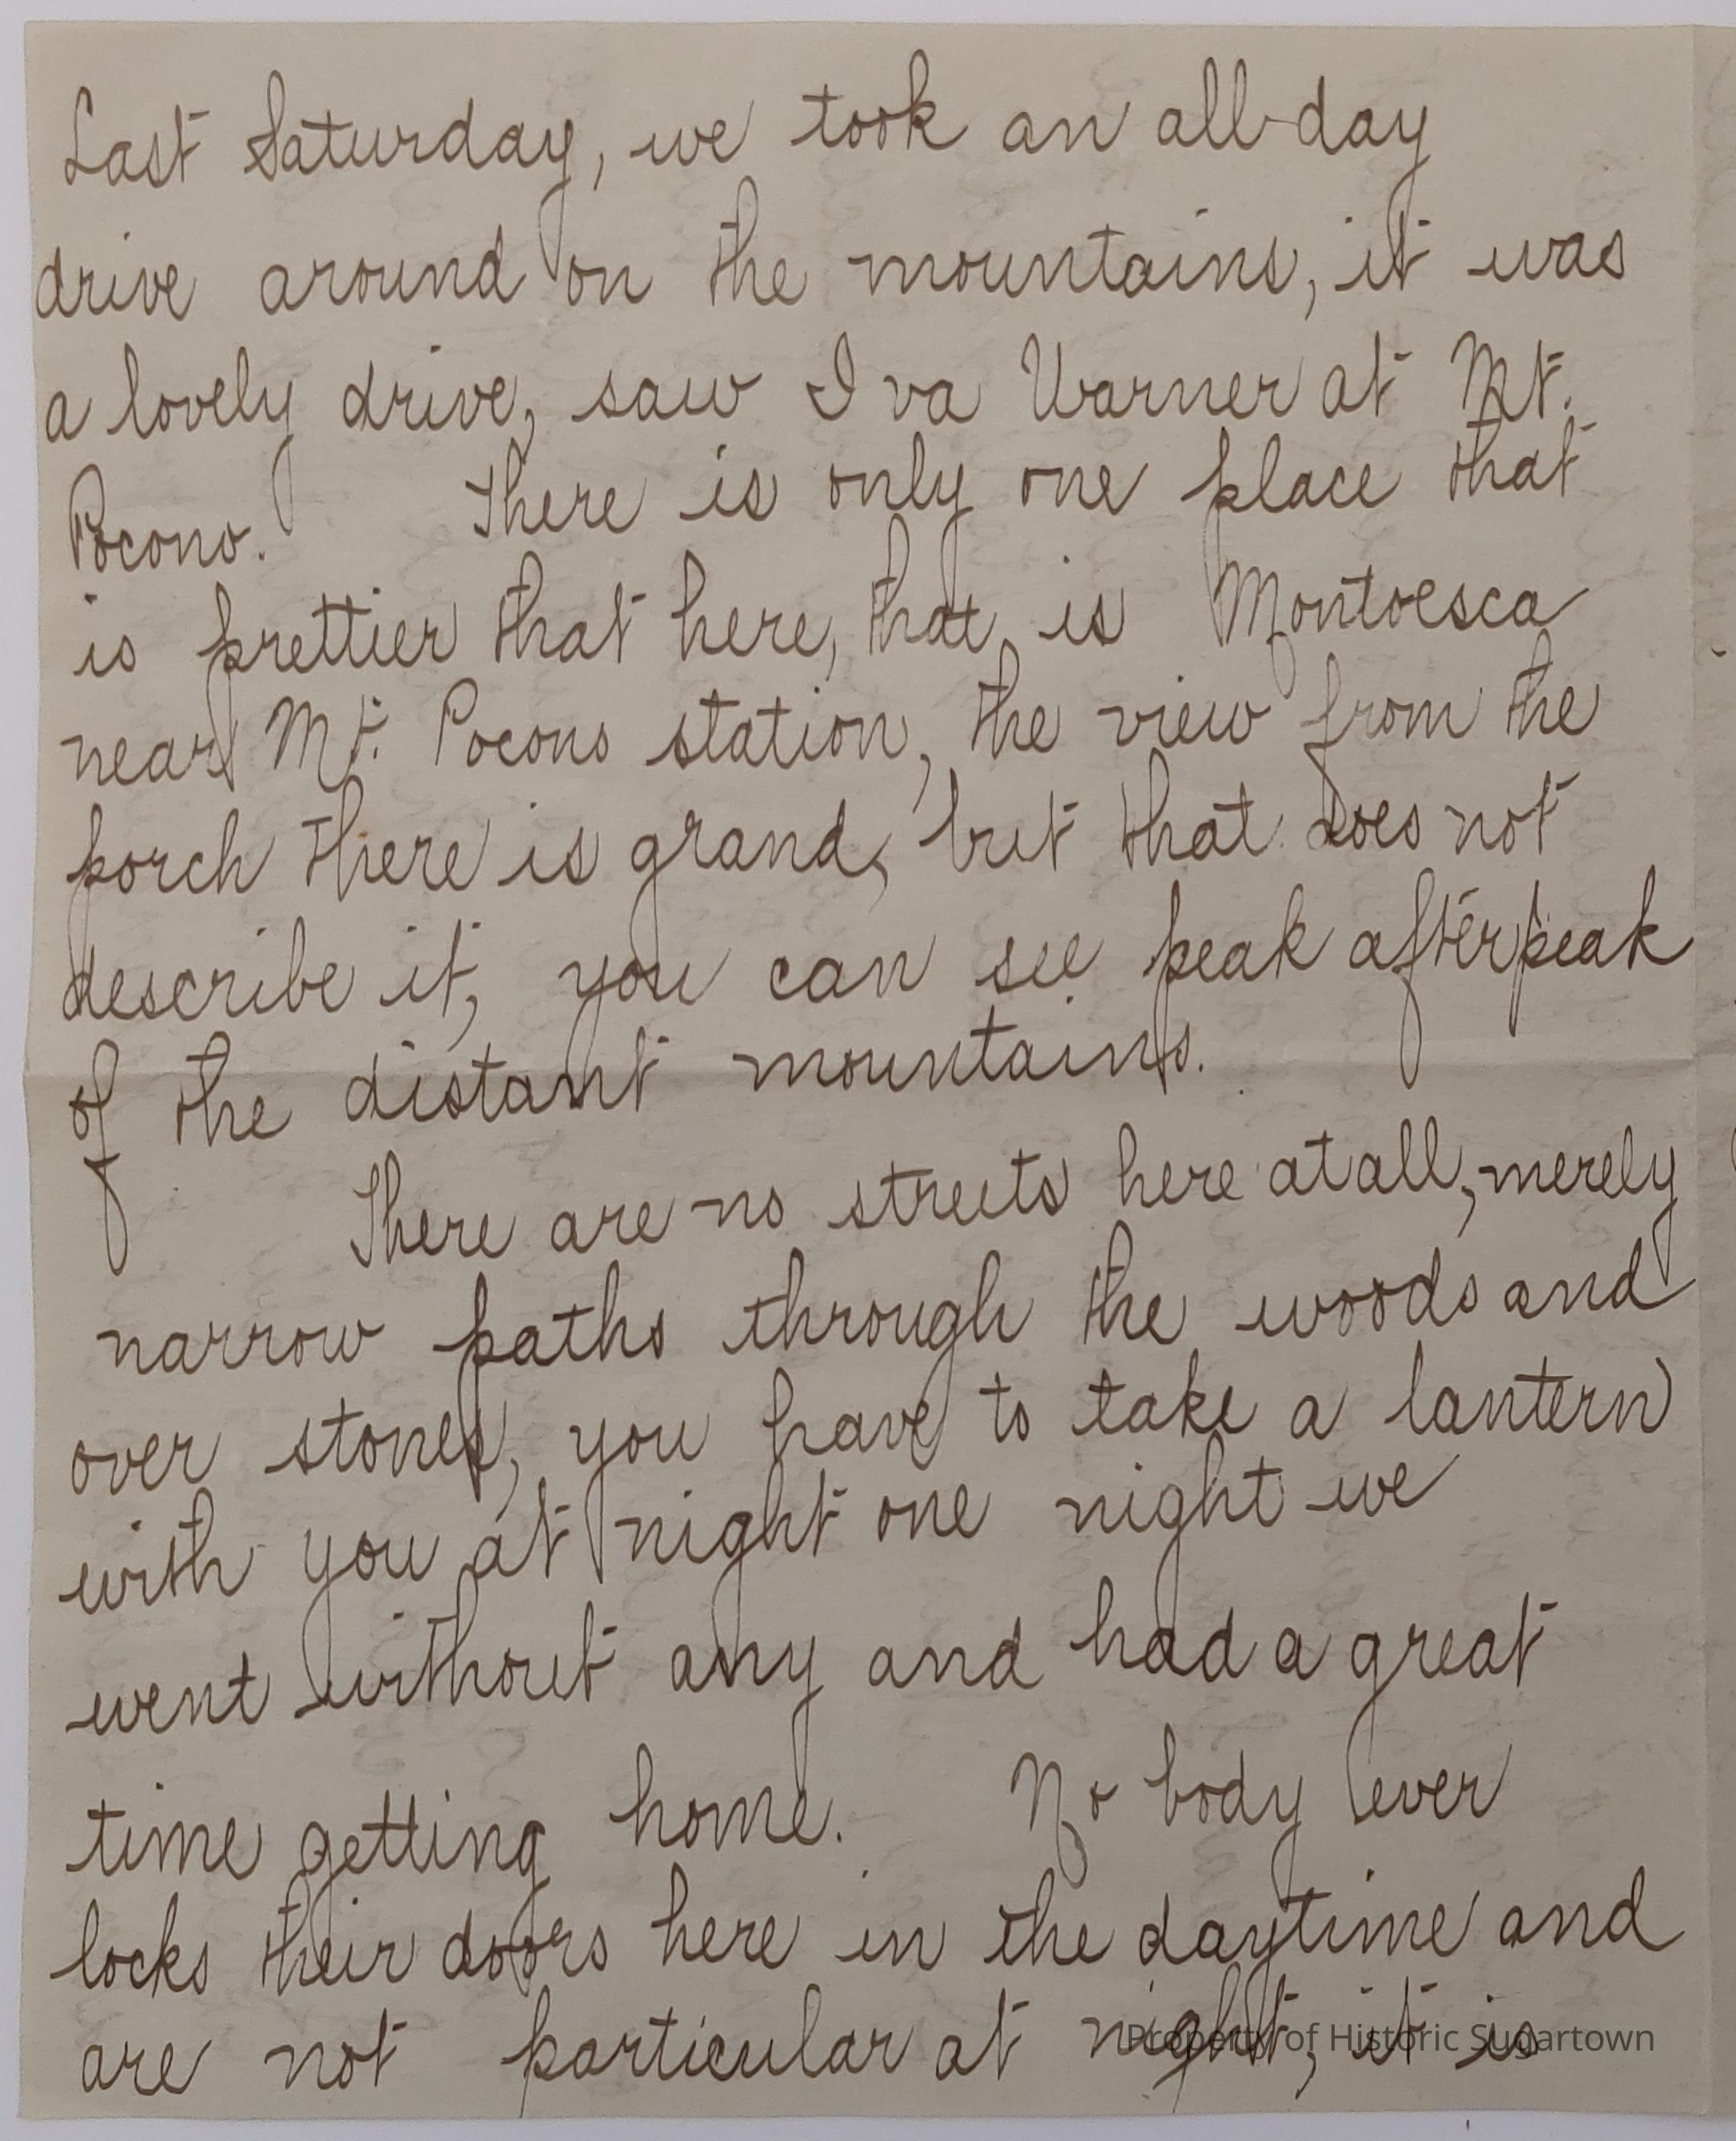 Last Saturday, we took an all-day
drive around on the mountains, it was
a lovely drive, saw Iva Warner at Mt.
Pocono. There is only one place that
is prettier that here, that is Montoesca
near Mt. Pocono station, the view from the
porch there is grand, but that does not
describe it, you can see peak after peak
of the distant mountains.
There are no streets here at all, merely
narrow paths through the woods and
over stones, you have to take a lantern
with you at night one night we
went without any and had a great
time getting home. No body ever
locks their doors here in the daytime and
are not particular at night, it is
Property of Historic Sugartown